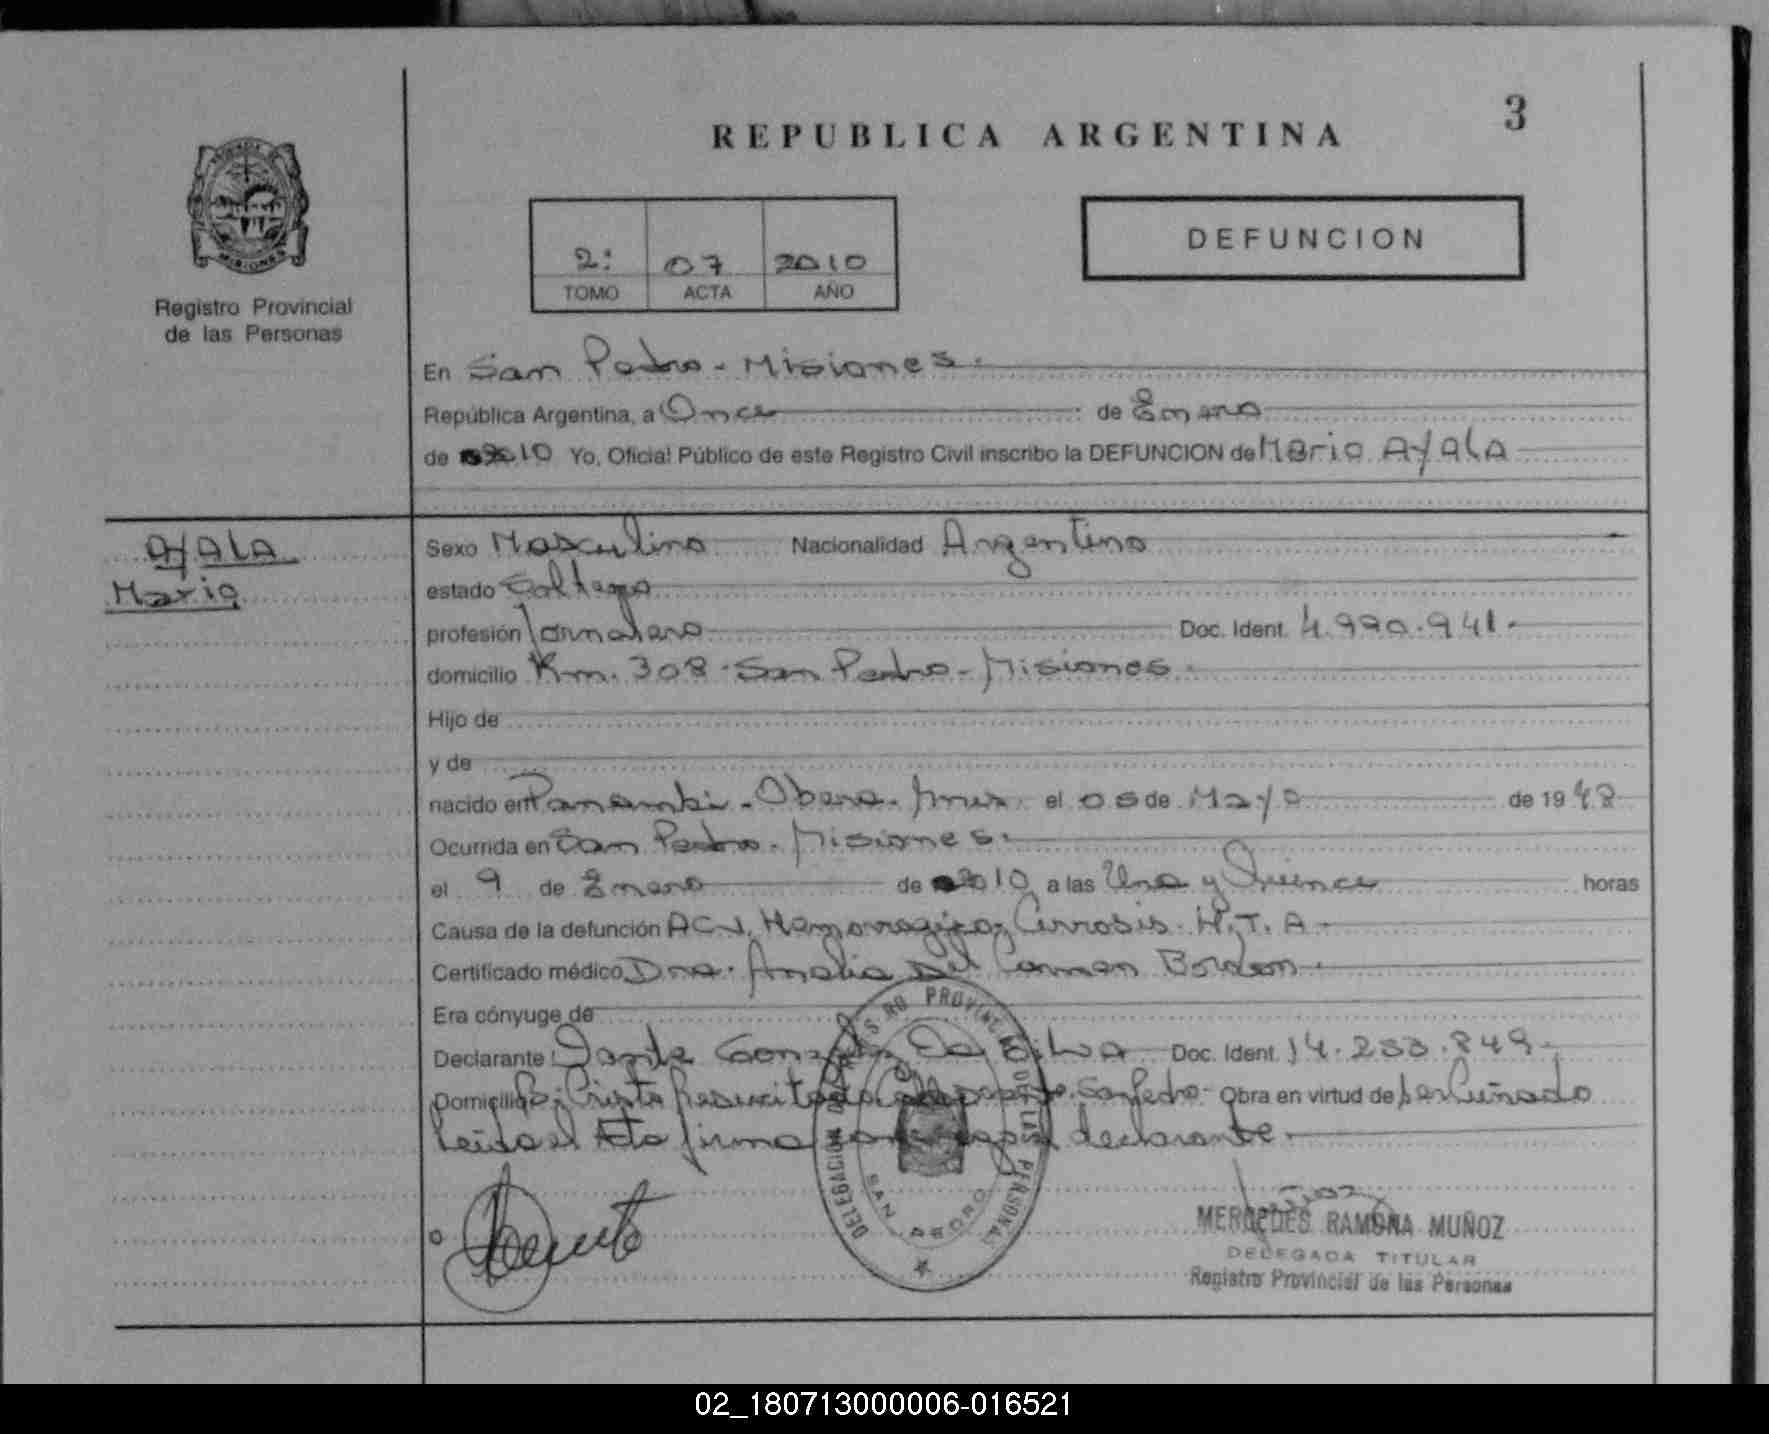 3
REPUBLICA ARGENTINA
DEFUNCION
2: 07 2010
TOMO ACTA AÑO
MISIONES
Registro Provincial
de las Personas
En San Pedro - Misiones.
República Argentina, a Once de Enero
de 2010 Yo, Oficial Público de este Registro Civil inscribo la DEFUNCION de Mario AyALA
AyALA
Mario
Sexo Masculino Nacionalidad Argentino
estado Soltero
profesión Jornalero Doc. Ident. 4.990.941.
domicilio Km. 308 - San Pedro - Misiones.
Hijo de
y de
nacido en Panambi - Obera - Mnes el 05 de Mayo de 1948
Ocurrida en San Pedro - Misiones.
el 9 de Enero de 2010 a las Una y Quince horas
Causa de la defunción ACV. Hemorragico, Cirrosis. H.T.A.
Certificado médico Dra. Analia Del Carmen Bordon.
Era cónyuge de
Declarante Gonzalez Da Silva Doc. Ident. 14.233.849.
Domicilio Bº Cristo Resucitado San Pedro - Obra en virtud de ser Cuñado
Leida el Acta firma conmigo el declarante.
DELEGACION PROVINCIAL DE LAS PERSONAS
SAN PEDRO
MERCEDES RAMONA MUÑOZ
DELEGADA TITULAR
Registro Provincial de las Personas
02_180713000006-016521